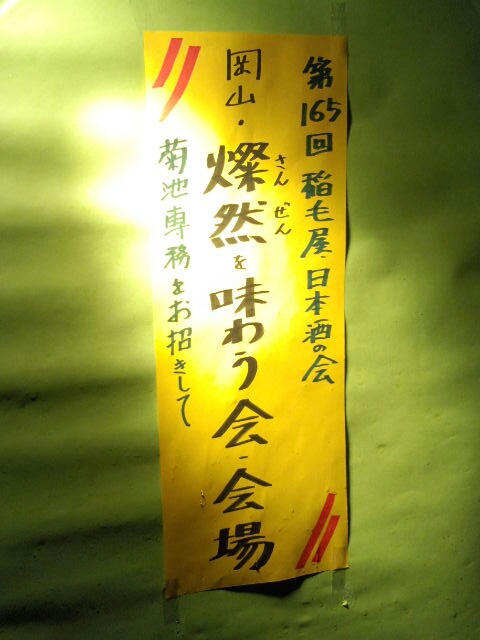 第165回 稲毛屋・日本酒の会
岡山・燦然を味わう会・会場
さんぜん
菊池専務をお招きして